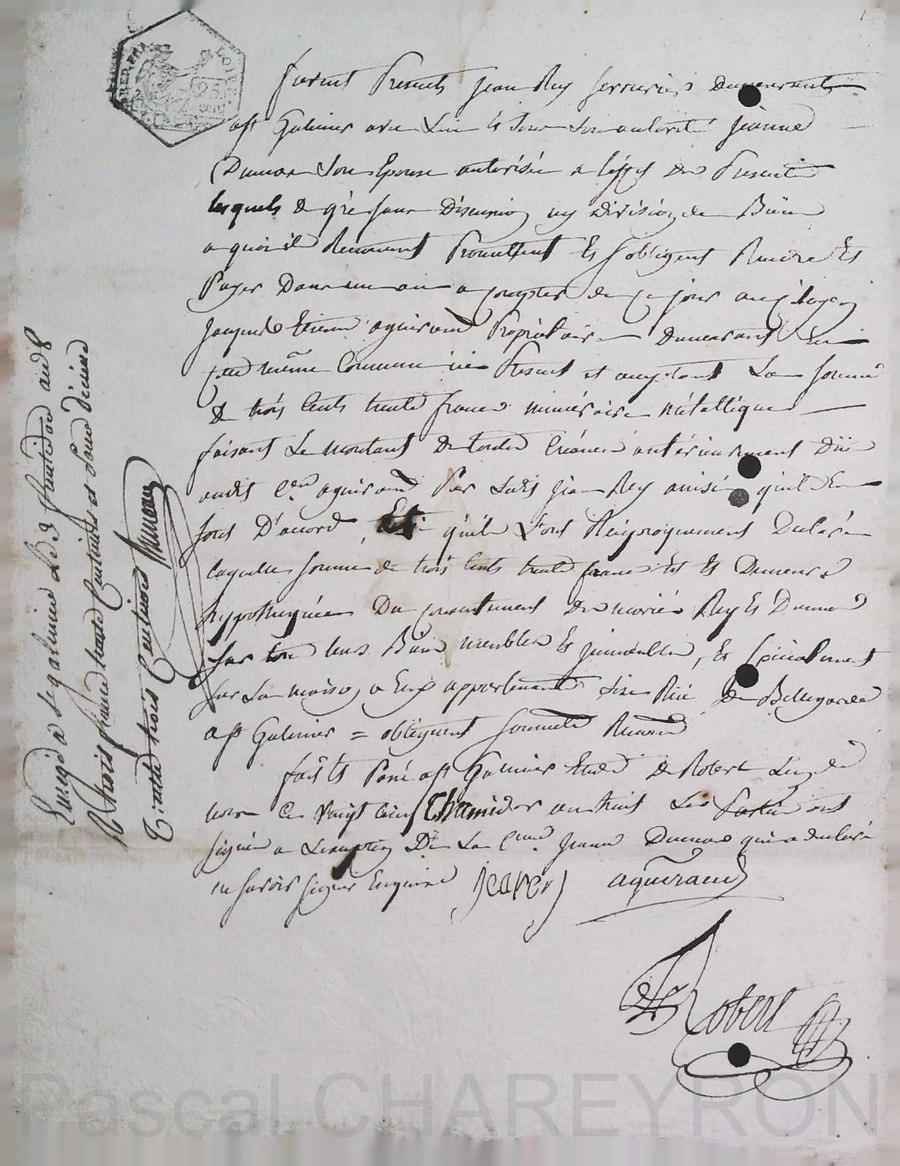 furent Presents Jean Rey serrurier demeurant
a St Galmier avec lui et sous son autorité Jeanne
Dumas son Epouse autorisée a l'effet des Presentes
lesquels de gré sans Discussion ny Division de Biens
a quoi ils Renoncent Promettent et s'obligent Rendre et
Payer Dans un an a compter de ce jour au citoyen
Jacques Etienne aguiraud Propriétaire Demeurant en
cette même Commune ici Present et acceptant La somme
de trois Cents trente francs numéraire métallique
faisant Le montant de toutes Créances antérieurement Dües
audit Cen aguiraud Par Ledit Jean Rey ainsi qu'ils En
sont D'accord, Et qu'ils L'ont Réciproquement Déclaré
Laquelle somme de trois Cents trente francs est Et Demeure
hypothequée Du consentement des mariés Rey Et Dumas
sur tous leurs Biens meubles Et immeubles, Et spécialement
sur La maison a Eux appartenante sise Rüe de Bellegarde
a St Galmier = obligeant soumettant Renonçant
fait et Passé a St Galmier Etude de Robert L'un de
nous Ce vingt cinq Thamidor an huit Les Parties ont
signé a L'exception De La Cenne Jeanne Dumas qui a déclaré
ne savoir signer Enquise Jearey aguiraud
Robert
Enregé a St galmier Le
R trois francs trente Centimes et Pour dixième
Trente trois Centimes
RÉP. FRA
Pascal CHAREYRON